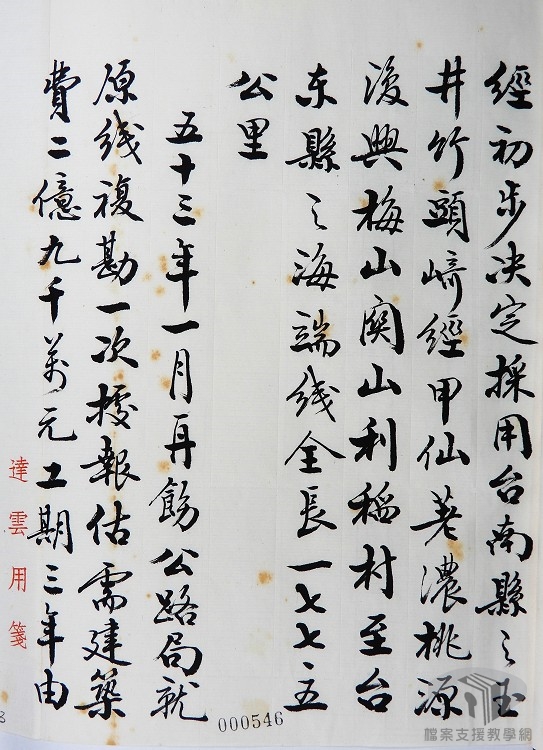 經初步決定採用台南縣之玉
井竹頭崎經甲仙荖濃桃源
復興梅山関山利稲村至台
东縣之海端线全長一七七五
公里
五十三年一月再飭公路局就
原线複勘一次據報估需建築
費二億九千萬元工期三年由
達雲用箋
000546
8
檔案支援教學網